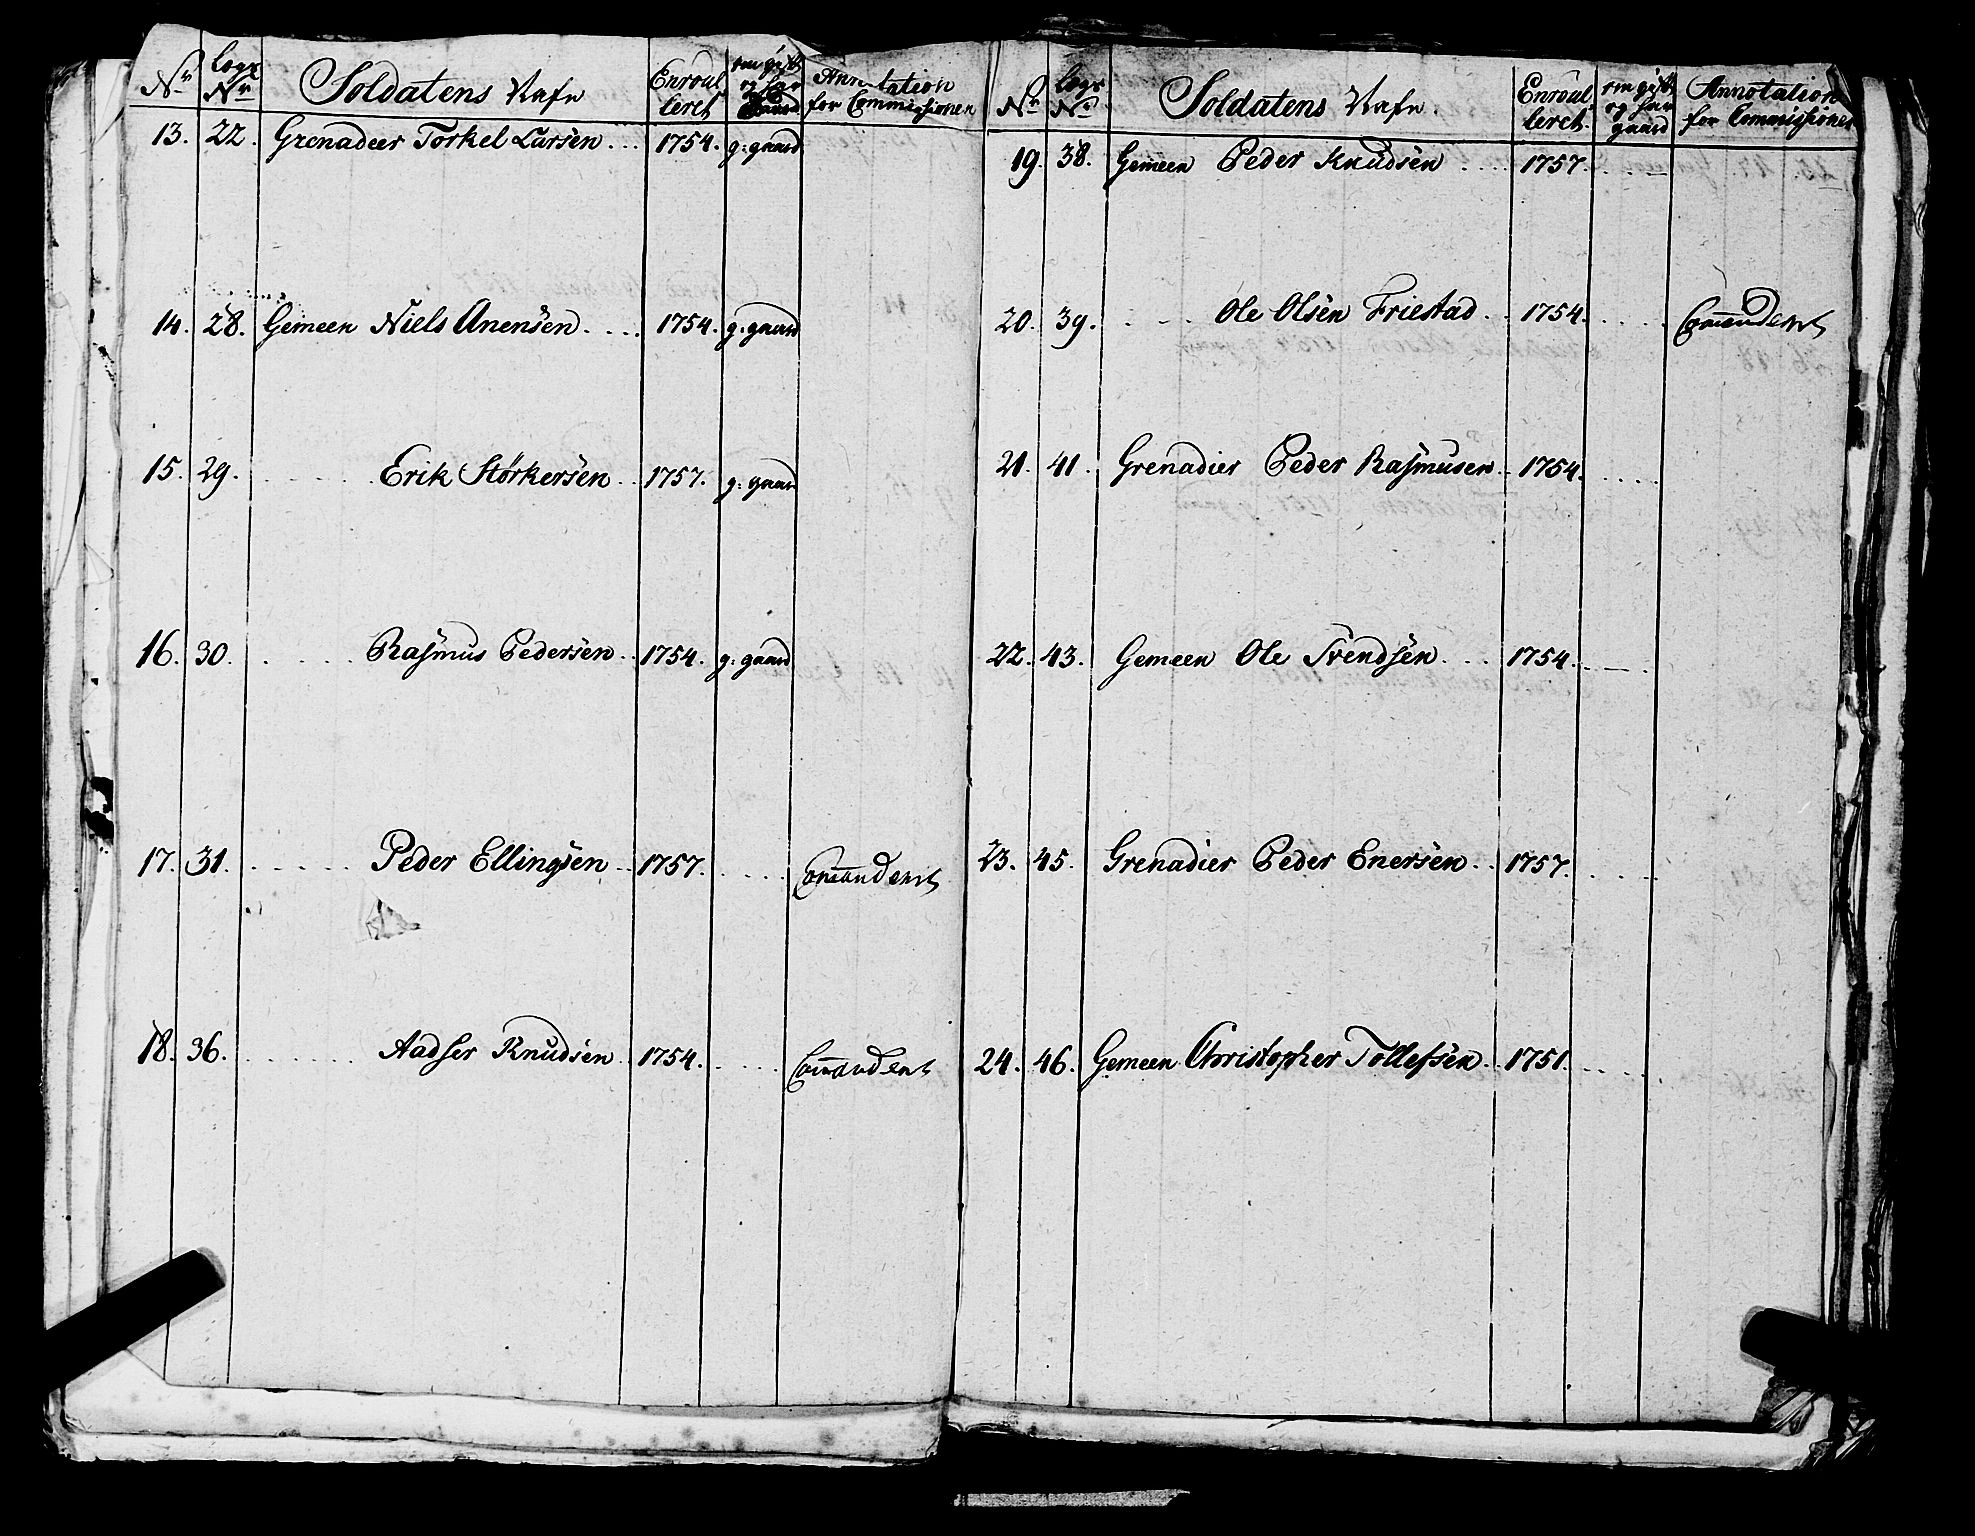 Nr Logs Nr Soldatens Nafn Enroulleret om gift og har gaard Annotation for Commissionen
13. 22. Grenadeer Torkel Larsen ... 1754. g: gaard
14. 28. Gemeen Niels Anensen .... 1754. g: gaard
15. 29. Erik Størkersen .. 1757. g: gaard
16. 30. Rasmus Pedersen .. 1754. g: gaard
17. 31. Peder Ellingsen .. 1757. Comanderet
18. 36. Aadser Knudsen . 1754. Comanderet
Nr Logs No Soldatens Nafn. Enroulleret om gift og har gaard Annotation for Commissionen
19. 38. Gemeen Peder Knudsen .... 1757.
20. 39. Ole Olsen Friestad .. 1754. Comanderet
21. 41. Grenadier Peder Rasmusen .. 1754.
22. 43. Gemeen Ole Svendsen .... 1754.
23. 45. Grenadier Peder Enersen .. 1757.
24. 46. Gemeen Christopher Tollefsen .. 1751.